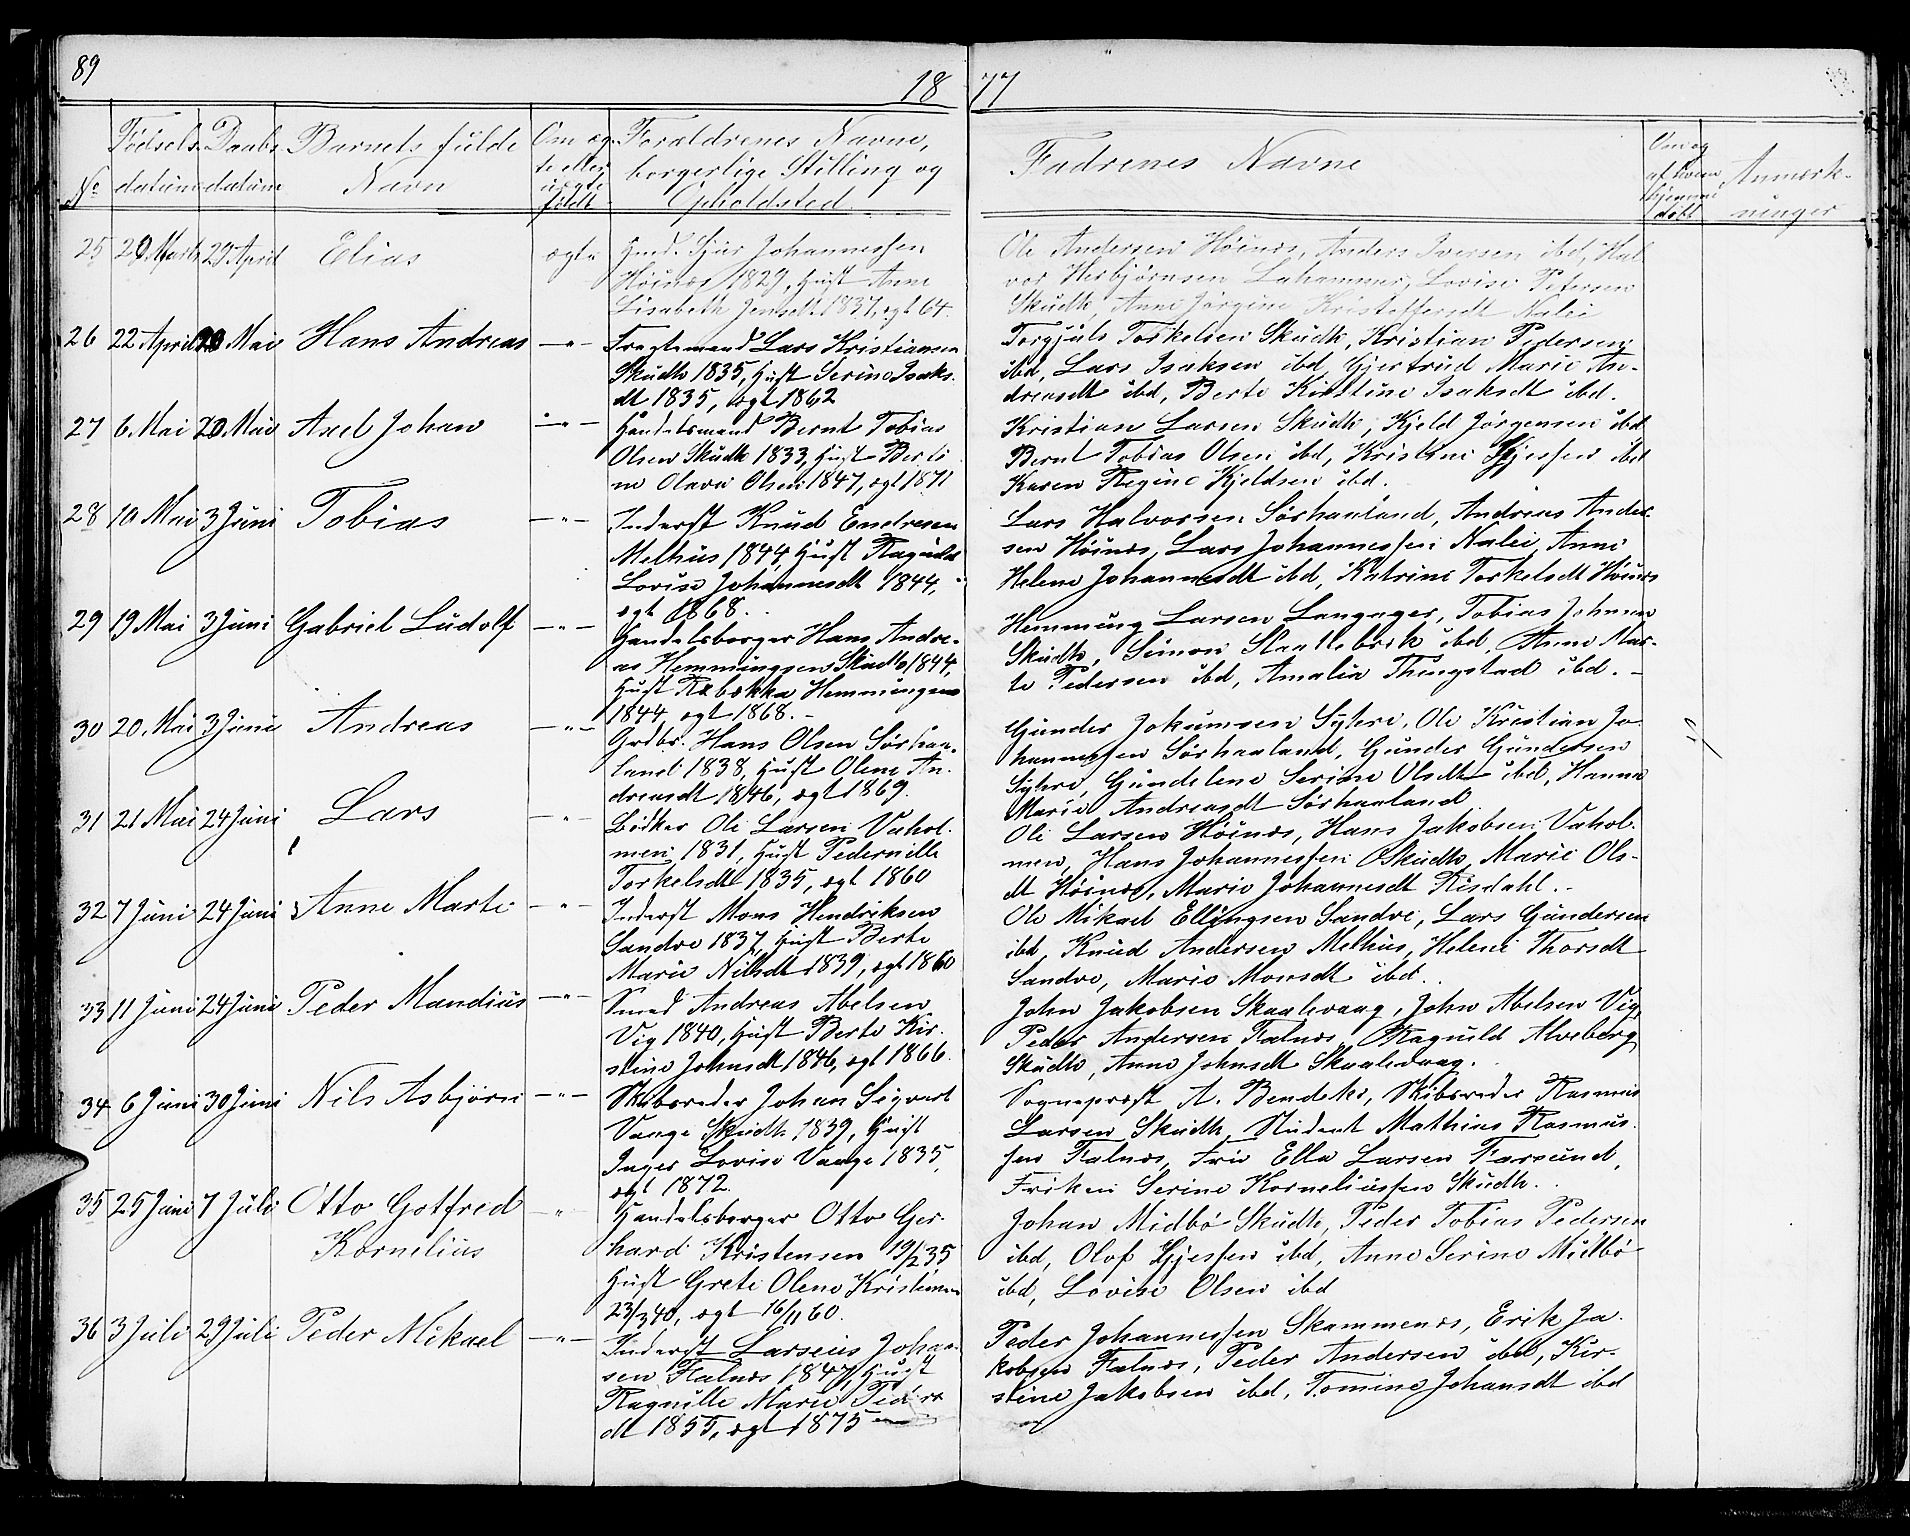 89
18 77
No
Fødsels-
datum
Daabs-
datum
Barnets fulde
Navn
Om æg-
te eller
uægte
født
Forældrenes Navne,
borgerlige Stilling og
Opholdsted
Fadrenes Navne
Anmærk-
ninger
25 29 Marts 29 April Elias ægte
Gmd. Sjur Johannessen
Høinæs 1829, Hust Anne
Lisabeth Jensdt 1837, ægt 64.
Ole Andersen Høinæs, Anders Iversen ibd, Hal-
vor Herbjørnsen Lahammer, Lovise Petersen
Skudh, Anne Jørgine Kristoffersdt Nalei
26 22 April 20 Mai Hans Andreas —"—
Fragtemand Lars Kristiansen
Skudh 1835, Hust Serine Isaks.
dt 1835, ægt 1862
Torgjuls Torkelsen Skudh, Kristian Pedersen
ibd, Lars Isaksen ibd, Gjertrud Marie An-
dreasdt ibd, Berte Kirstine Isaksdt ibd.
27 6 Mai 20 Mai Axel Johan —"—
Handelsmand Bernt Tobias
Olsen Skudh 1833, Hust Berti
ne Olava Olsen 1847, ægt 1871
Kristian Larsen Skudh, Kjeld Jørgensen ibd
Bernt Tobias Olsen ibd, Kristine Gjessen ibd
Karen Regine Kjeldsen ibd.
28 10 Mai 3 Juni Tobias —"—
Inderst Knud Endresen
Melhus 1844, Hust Ragnilde
Lovise Johannesdt 1844,
ægt 1868.
Lars Halvorsen Sørhaaland, Andreas Ander-
sen Høinæs, Lars Johannessen Nalei, Anne
Helene Johannesdt ibd, Katrine Torkelsdt Høinæs
29 19 Mai 3 Juni Gabriel Ludolf —"—
Handelsborger Hans Andre-
as Hemmingsen Skudh 1844,
Hust Rebekka Hemmingsen
1844 ægt 1868.
Hemming Larsen Langager, Tobias Johnsen
Skudh, Simon Slaattebrek ibd, Anne Mar-
te Pedersen ibd, Amalia Thingstad ibd.
30 20 Mai 3 Juni Andreas —"—
Grdbr. Hans Olsen Sørhaa-
land 1838, Hust Olene An-
dreasdt 1846, ægt 1869.
Gunder Jokumsen Syhre, Ole Kristian Jo-
hannessen Sørhaaland, Gunder Gundersen
Syhre, Gundelene Serine Olsdt ibd, Hanna
Marie Andreasdt Sørhaaland
31 21 Mai 24 Juni Lars —"—
Bødker Ole Larsen Vahol-
men 1831, Hust Pedernille
Torkelsdt 1835, ægt 1860
Ole Larsen Høinæs, Hans Jakobsen Vahol-
men, Hans Johannessen Skudh, Marie Ols-
dt Høinæs, Marie Johannesdt Risdahl.
32 7 Juni 24 Juni Anne Marte —"—
Inderst Mons Hendriksen
Sandve 1837, Hust Berte
Marie Nilsdt 1839, ægt 1860
Ole Mikael Ellingsen Sandve, Lars Gundersen
ibd, Knud Andersen Melhus, Helene Thorsdt
Sandve, Marie Monsdt ibd.
33 11 Juni 24 Juni Peder Mandius —"—
Smed Andreas Abelsen
Vig 1840, Hust Berte Kir-
stine Johnsdt 1846, ægt 1866.
John Jakobsen Skaalevaag, John Abelsen Vig,
Peder Andersen Falnæs, Ragnild Alveberg
Skudh, Anne Johnsdt Skaalevaag.
34 6 Juni 30 Juni Nils Asbjørn —"—
Skibsreder Johan Sigvart
Vaage Skudh 1839, Hust
Inger Lovise Vaage 1835,
ægt 1872.
Sogneprest A. Bendeke, Skibsreder Rasmus
Larsen Skudh, Student Mathias Rasmus-
sen Falnæs, Fru Ella Larsen Farsund,
Frøken Serine Korneliussen Skudh.
35 25 Juni 7 Juli Otto Gotfred
Kornelius —"
Handelsborger Otto Ger-
hard Kristensen 19/2 35
Hust Grete Olene Kristensen
23/3 40, ægt 16/11 60.
Johan Midbø Skudh, Peder Tobias Pedersen
ibd, Olof Gjessen ibd, Anne Serine Midbø
ibd, Lovise Olsen ibd
36 3 Juli 29 Juli Peder Mikael —"—
Inderst Larseus Johan-
sen Falnæs 1847, Hust
Ragnille Marie Peders
dt 1855, ægt 1875
Peder Johannessen Skammenæs, Erik Ja-
kobsen Falnæs, Peder Andersen ibd, Kir-
stine Jakobsen ibd, Tomine Johansdt ibd